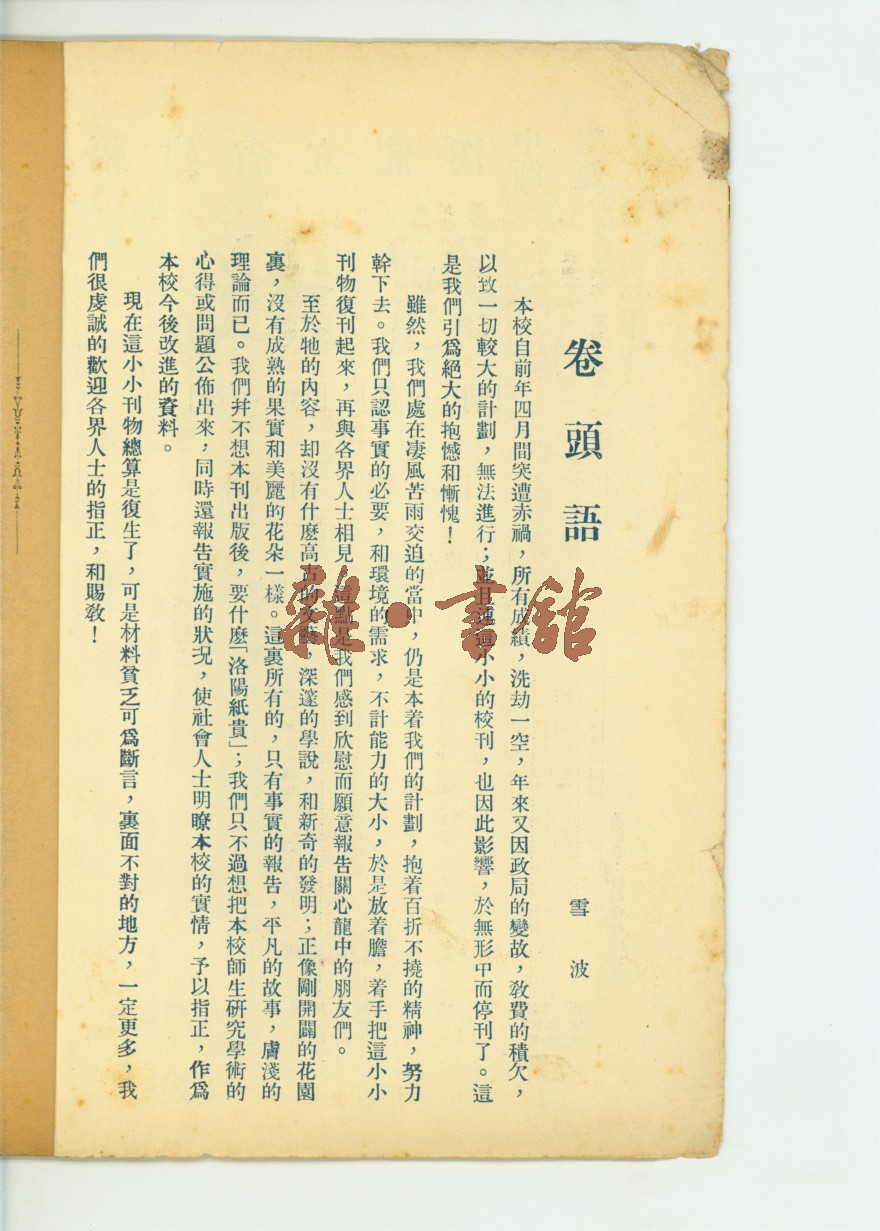 卷頭語
雪波
本校自前年四月間突遭赤禍，所有成績，洗劫一空，年來又因政局的變故，敎費的積欠，
以致一切較大的計劃，無法進行；並且連這小小的校刊，也因此影響，於無形中而停刊了。這
是我們引爲絕大的抱憾和慚愧！
雖然，我們處在凄風苦雨交迫的當中，仍是本着我們的計劃，抱着百折不撓的精神，努力
幹下去。我們只認事實的必要，和環境的需求，不計能力的大小，於是放着膽，着手把這小小
刊物復刊起來，再與各界人士相見，這點是我們感到欣慰而願意報告關心龍中的朋友們。
至於牠的內容，却沒有什麽高古的文藝，深邃的學說，和新奇的發明；正像剛開闢的花園
裏，沒有成熟的果實和美麗的花朵一樣。這裏所有的，只有事實的報告，平凡的故事，膚淺的
理論而已。我們幷不想本刊出版後，要什麽「洛陽紙貴」；我們只不過想把本校師生研究學術的
心得或問題公佈出來，同時還報告實施的狀况，使社會人士明瞭本校的實情，予以指正，作爲
本校今後改進的資料。
現在這小小刊物總算是復生了，可是材料貧乏可爲斷言，裏面不對的地方，一定更多，我
們很虔誠的歡迎各界人士的指正，和賜敎！
雜·書館